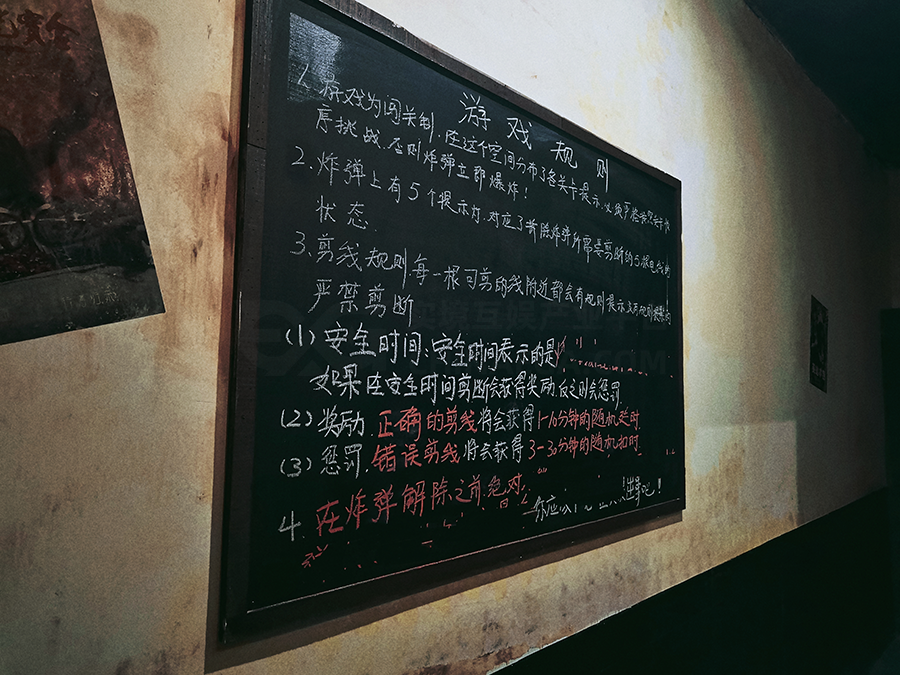 游戏规则
1. 游戏为闯关制,在这个空间分布了各关卡提示,必须严格按照关卡顺
序挑战,否则炸弹立即爆炸!
2. 炸弹上有5个提示灯,对应了拆除炸弹所需要剪断的5根电线的
状态
3. 剪线规则,每一根可剪的线附近都会有规则提示,没有规则
严禁剪断
(1) 安全时间:安全时间表示的是
如果在安全时间剪断会获得奖励,反之则会惩罚
(2) 奖励,正确的剪线将会获得1-10分钟的随机延时
(3) 惩罚,错误剪线将会获得3-30分钟的随机扣时
4. 在炸弹解除之前,绝对
你应 吧!